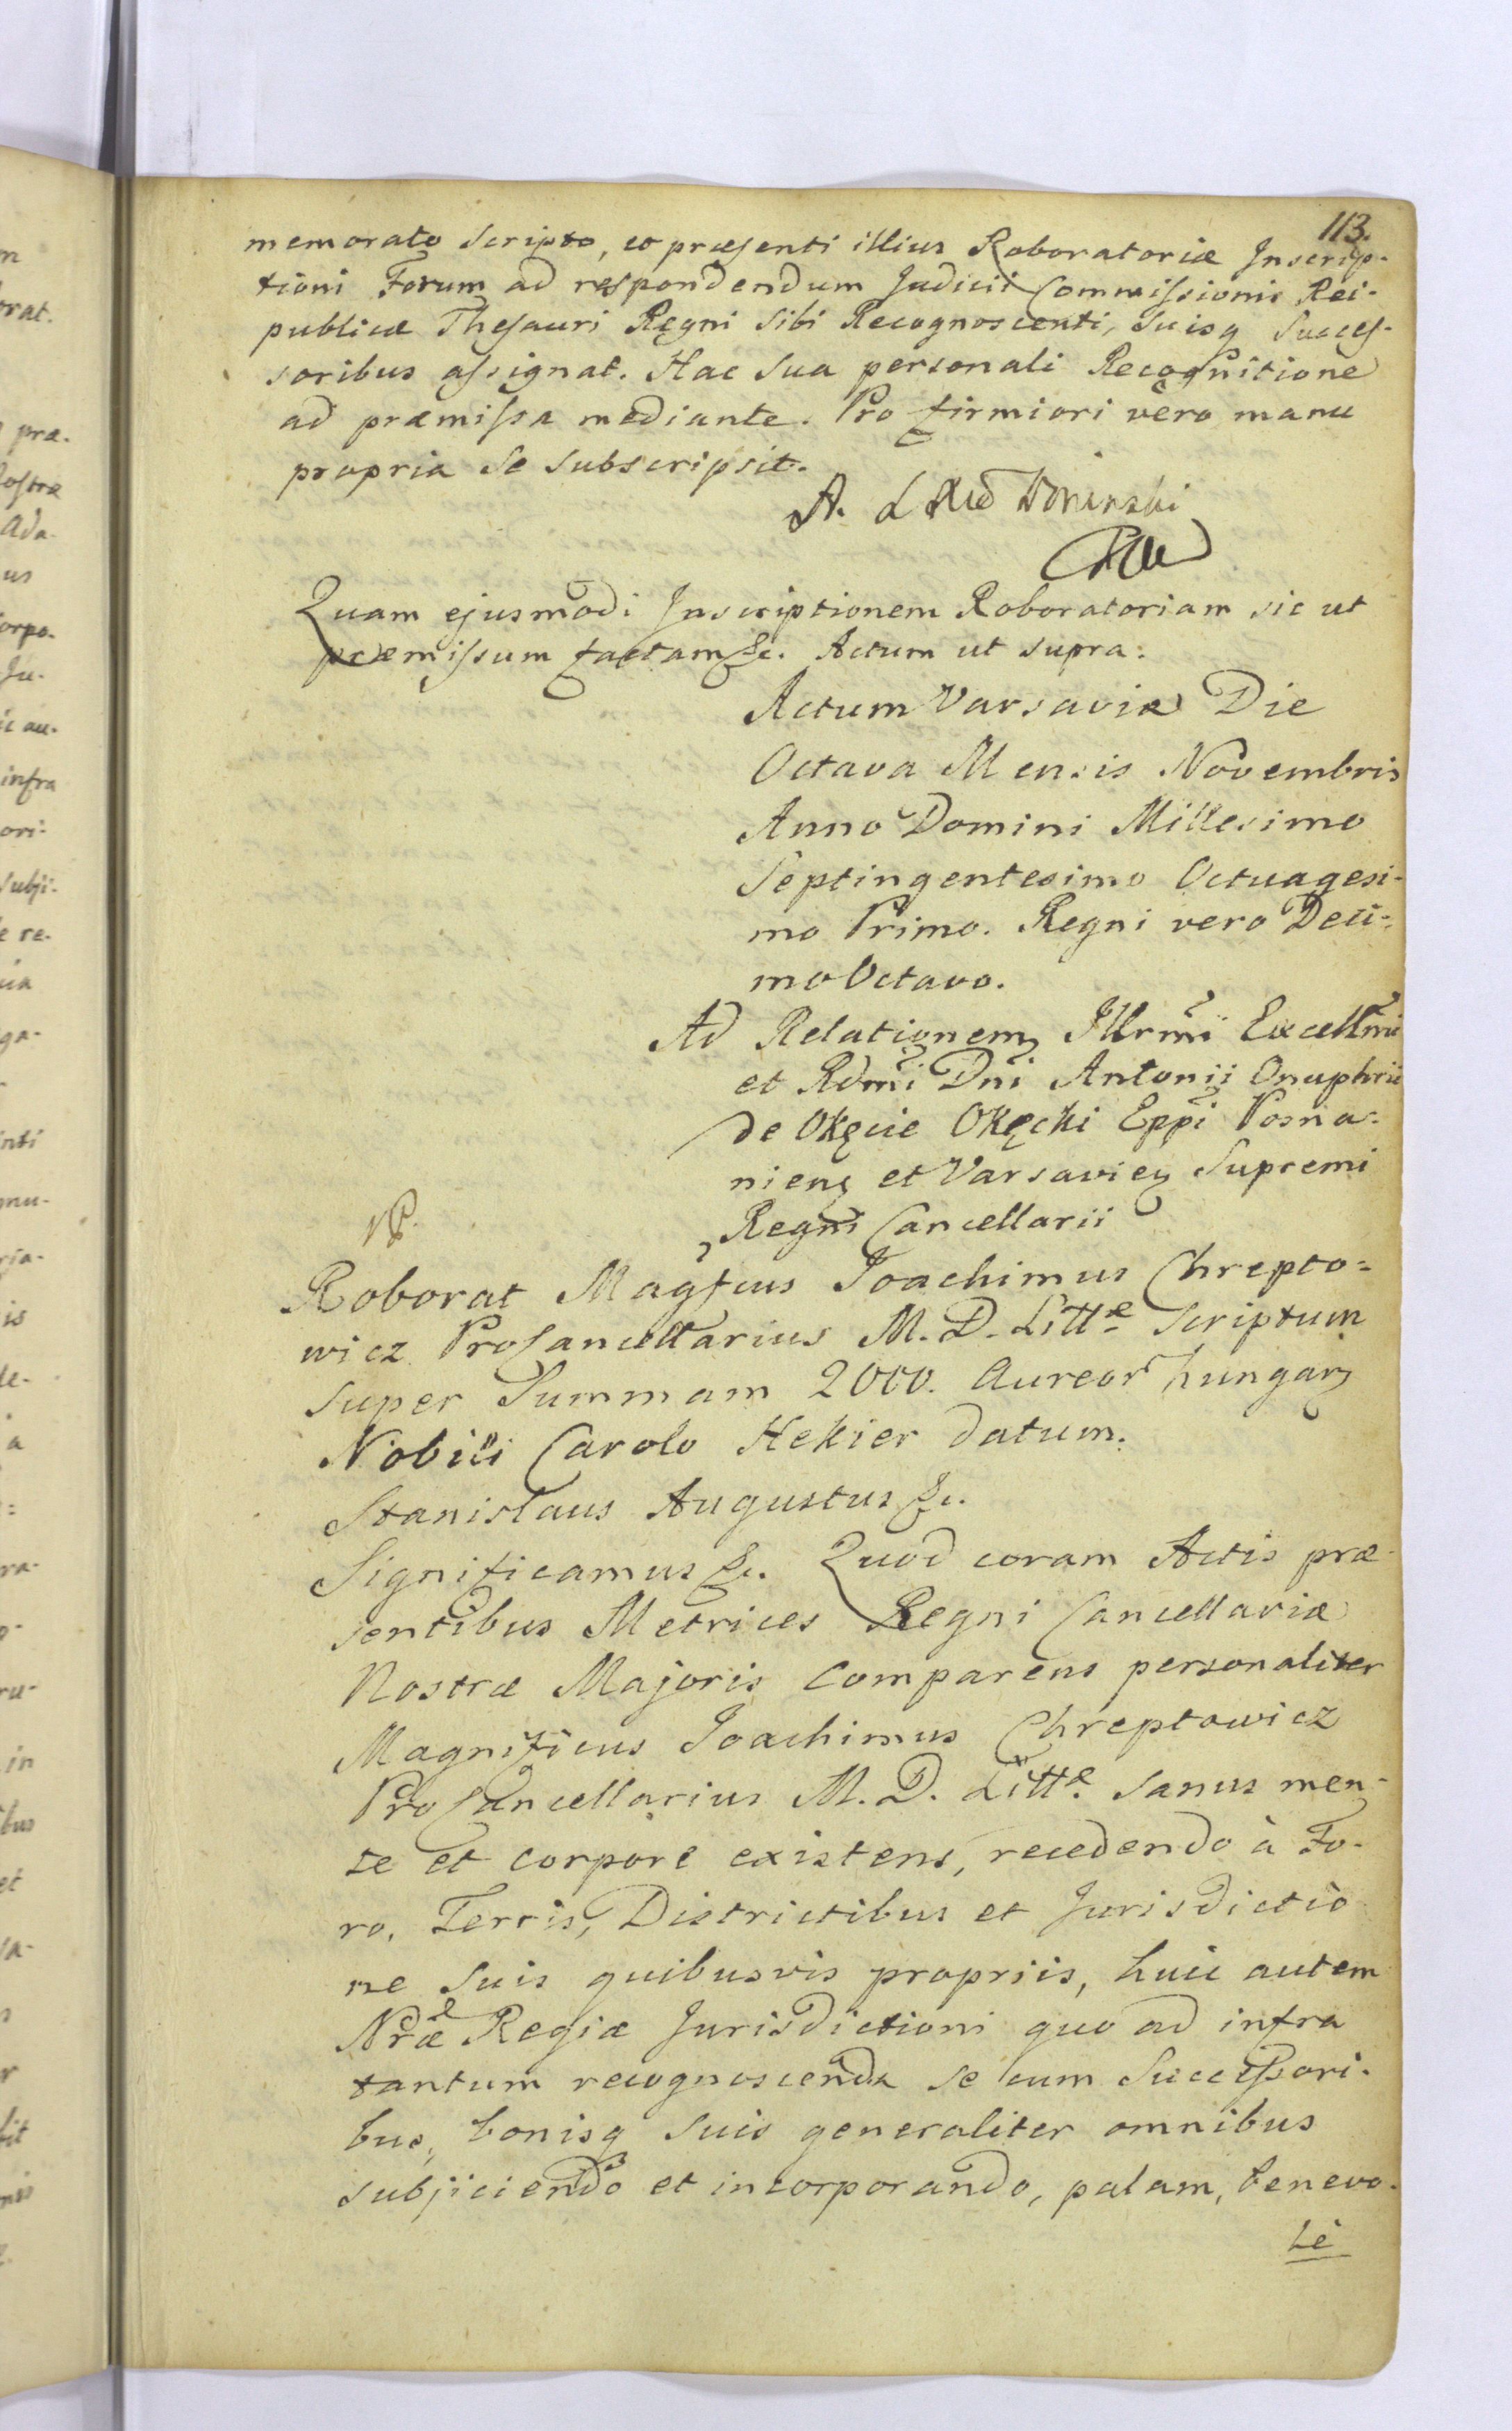 113.
memorato Scripto, eo præsenti illius Roboratoriæ Inscrip-
tioni Forum ad respondendum Judicii Commissionis Rei-
publicæ Thesauri Regni Sibi Recognoscenti, Suisq Succes-
soribus assignat. Hac Sua personali Recognitione
ad præmissa mediante. Pro firmiori vero manu
propria Se Subscripsit.
A.
Quam ejusmodi Inscriptionem Roboratoriam sic ut
præmissum factam &c. Actum ut supra.
Actum Varsaviæ Die
Octava Mensis Novembris
Anno Domini Millesimo
Septingentesimo Octuagesi-
mo Primo. Regni vero Deci-
mo Octavo.
Ad Relationem Illrmi Excellmi
et Rdmi Dni Antonii Onuphrii
de Okęcie Okęcki Eppi Posna-
niens et Varsavien Supremi
Regni Cancellarii
Roborat Magfcus Joachimus Chrepto=
wicz ProCancellarius M. D. Littæ Scriptum
Super Summam 2000. Aureor hungar
Nobili Carolo Hekier datum.
Stanislaus Augustus &c.
Significamus &c. Quod coram Actis præ-
sentibus Metrices Regni Cancellariæ
Nostræ Majoris Comparens personaliter
Magnificus Joachimus Chreptowicz
ProCancellarius M. D. Littæ Sanus men-
te et corpore existens, recedendo à Fo-
ro, Terris, Districtibus et Jurisdictio
ne Suis quibusvis propriis, huic autem
Nræ Regiæ Jurisdictioni quo ad infra
tantum recognoscenda se cum Successori-
bus, bonisq Suis generaliter omnibus
subjiciendo et incorporando, palam, benevo-
lè